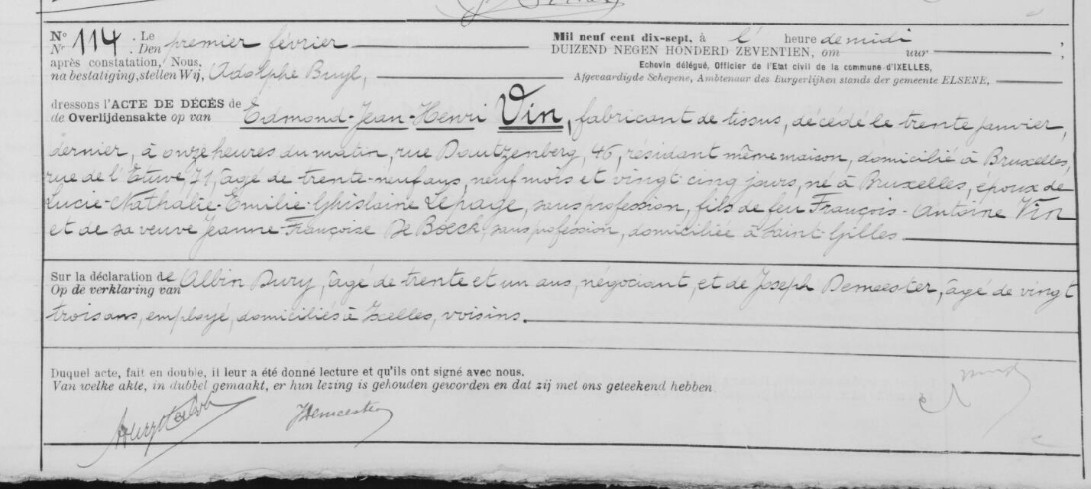 N° 114. Le premier février Mil neuf cent dix-sept, à l' heure de midi ;
Nr Den DUIZEND NEGEN HONDERD ZEVENTIEN, om uur ;
après constatation, Nous, Adolphe Buyl, Echevin délégué, Officier de l'Etat civil de la commune d'IXELLES,
na bestatiging, stellen Wij, Afgevaardigde Schepene, Ambtenaar des burgerlijken stands der gemeente ELSENE,
dressons l'ACTE DE DÉCÈS de Edmond-Jean-Henri Vin, fabricant de tissus, décédé le trente janvier,
de Overlijdensakte op van
dernier, à onze heures du matin, rue Dautzenberg, 46, résidant même maison, domicilié à Bruxelles,
rue de l'Etuve 71, âgé de trente-neuf ans, neuf mois et vingt-cinq jours, né à Bruxelles, époux de
Lucie-Nathalie-Emilie-Ghislaine Lepage, sans profession, fils de feu François-Antoine Vin
et de sa veuve Jeanne-Françoise De Boeck, sans profession, domiciliée à Saint-Gilles
Sur la déclaration de Albin Dury, âgé de trente et un ans, négociant, et de Joseph Demeester, âgé de vingt
Op de verklaring van
trois ans, employé, domiciliés à Ixelles, voisins.
Duquel acte, fait en double, il leur a été donné lecture et qu'ils ont signé avec nous.
Van welke akte, in dubbel gemaakt, er hun lezing is gehouden geworden en dat zij met ons geteekend hebben
JDemeester